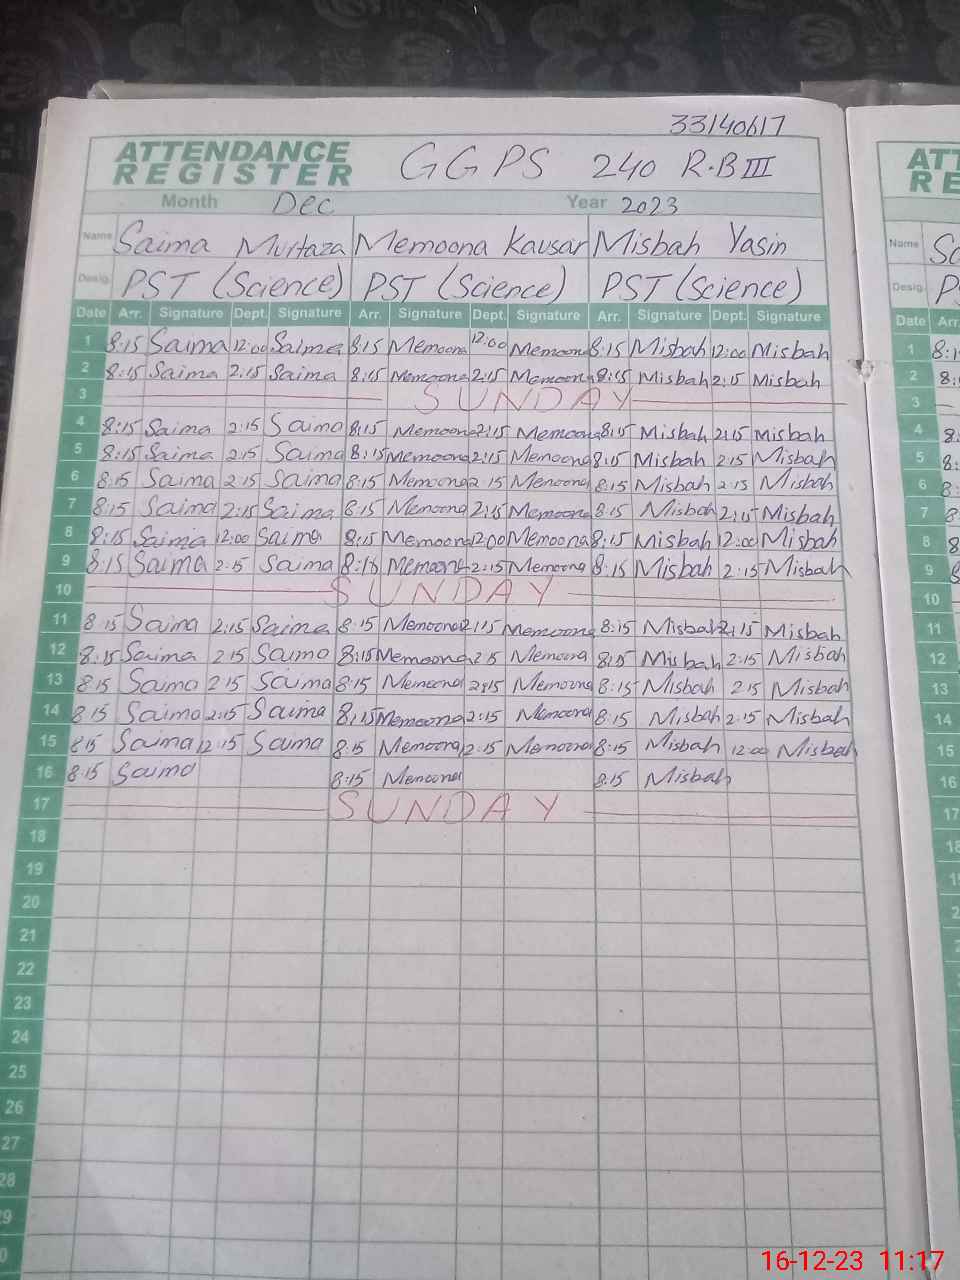 33140617
ATTENDANCE REGISTER GGPS 240 R.B III
Month Dec Year 2023
Name Saima Murtaza Memoona Kausar Misbah Yasin
Desig. PST (Science) PST (Science) PST (Science)
Date Arr. Signature Dept. Signature Arr. Signature Dept. Signature Arr. Signature Dept. Signature
1 8:15 Saima 12:00 Saima 8:15 Memoona 12:00 Memoona 8:15 Misbah 12:00 Misbah
2 8:15 Saima 2:15 Saima 8:15 Memoona 2:15 Memoona 8:15 Misbah 2:15 Misbah
3 SUNDAY
4 8:15 Saima 2:15 Saima 8:15 Memoona 2:15 Memoona 8:15 Misbah 2:15 Misbah
5 8:15 Saima 2:15 Saima 8:15 Memoona 2:15 Memoona 8:15 Misbah 2:15 Misbah
6 8:15 Saima 2:15 Saima 8:15 Memoona 2:15 Memoona 8:15 Misbah 2:15 Misbah
7 8:15 Saima 2:15 Saima 8:15 Memoona 2:15 Memoona 8:15 Misbah 2:15 Misbah
8 8:15 Saima 12:00 Saima 8:15 Memoona 12:00 Memoona 8:15 Misbah 12:00 Misbah
9 8:15 Saima 2:15 Saima Memoona 2:15 Memoona 8:15 Misbah 2:15 Misbah
10 SUNDAY
11 8:15 Saima 2:15 Saima 8:15 Memoona 2:15 Memoona 8:15 Misbah 2:15 Misbah
12 8:15 Saima 2:15 Saima 8:15 Memoona 2:15 Memoona 8:15 Misbah 2:15 Misbah
13 8:15 Saima 2:15 Saima 8:15 Memoona 2:15 Memoona 8:15 Misbah 2:15 Misbah
14 8:15 Saima 2:15 Saima 8:15 Memoona 2:15 Memoona 8:15 Misbah 2:15 Misbah
15 8:15 Saima 12:15 Saima 8:15 Memoona 12:15 Memoona 8:15 Misbah 12:00 Misbah
16 8:15 Saima 8:15 Memoona 8:15 Misbah
17 SUNDAY
18
19
20
21
22
23
24
25
26
27
28
ATT
RE
Name
Desig.
Date Arr.
1
2
3
4
5
6
7
8
9
10
11
12
13
14
15
16
17
16-12-23 11:17